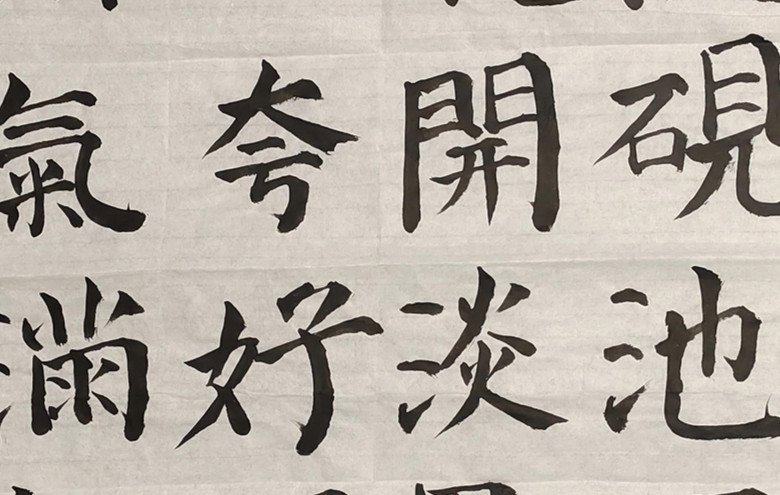 硯池
開淡
夸好
氣滿